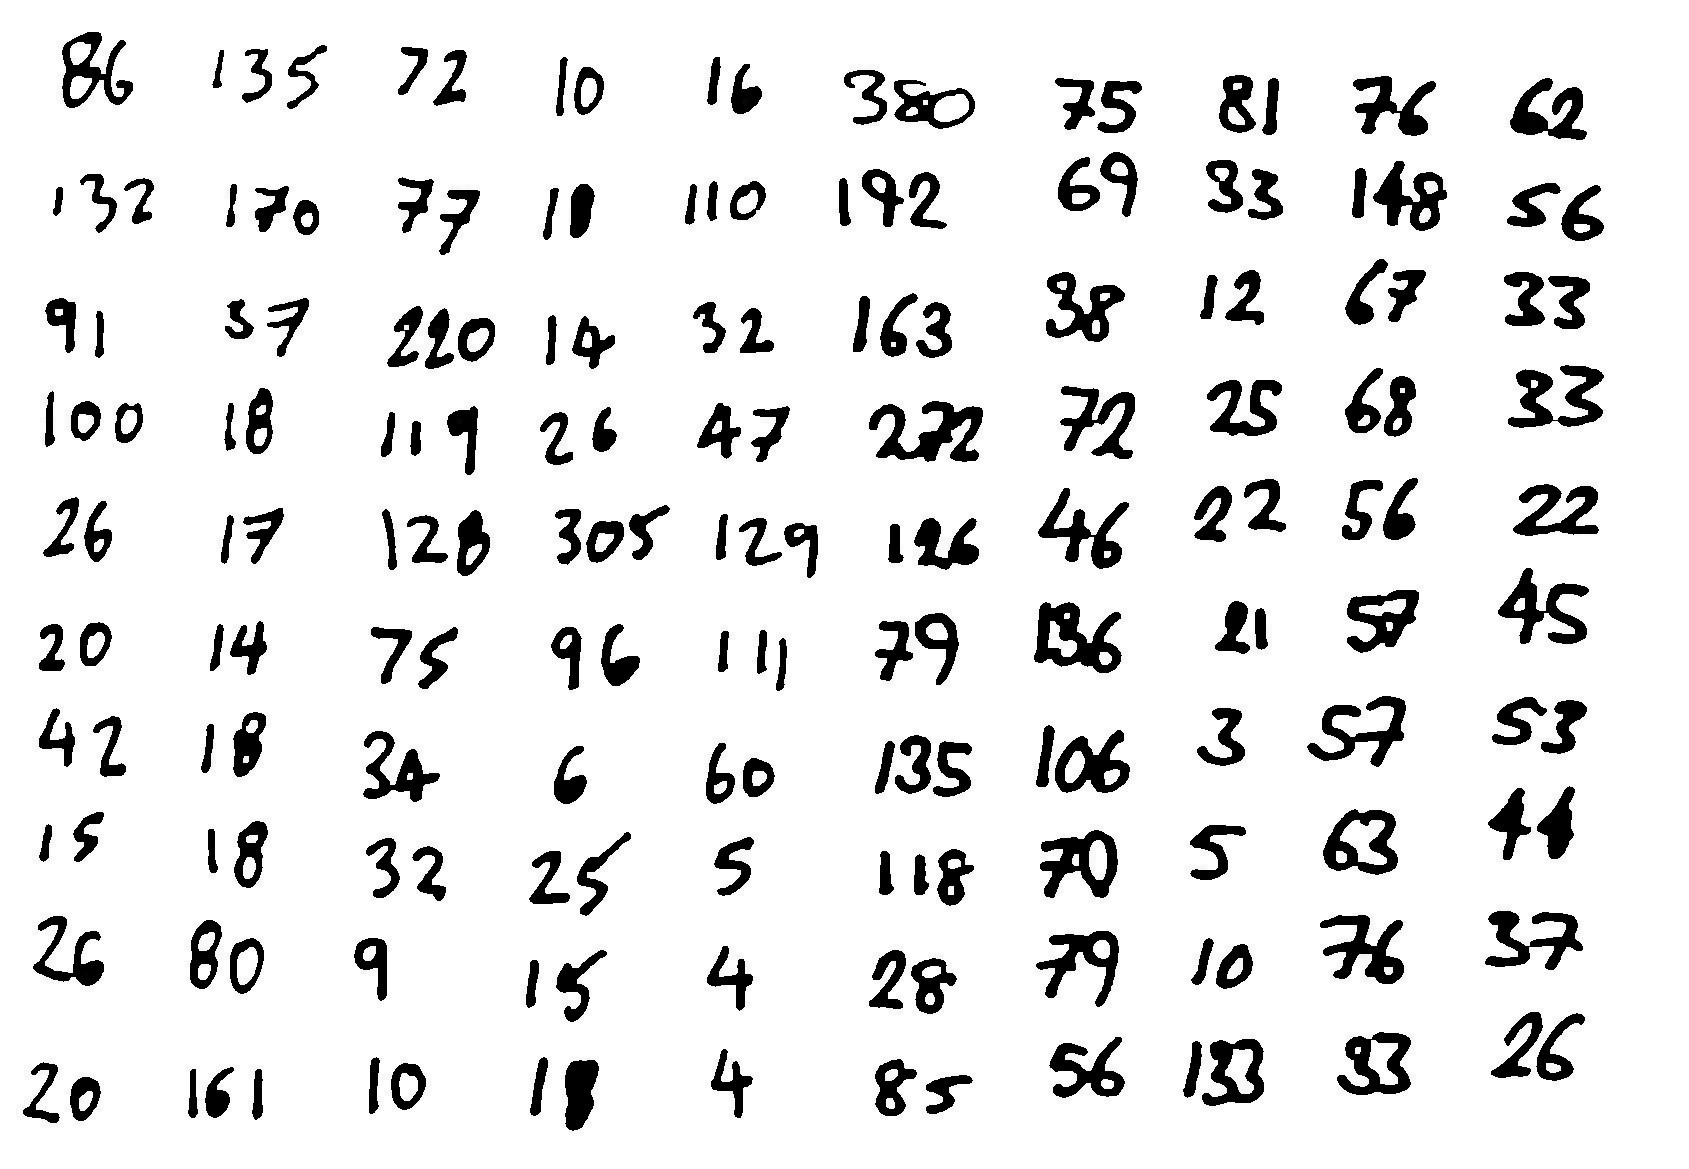 86 135 72 10 16 380 75 81 76 62
132 170 77 18 110 192 69 33 148 56
91 37 220 14 32 163 38 12 67 33
100 18 119 26 47 272 72 25 68 33
26 17 128 305 129 126 46 22 56 22
20 14 75 96 111 79 136 21 57 45
42 18 34 6 60 135 106 3 57 53
15 18 32 25 5 118 70 5 63 44
26 80 9 15 4 28 79 10 76 37
20 161 10 18 4 85 56 133 33 26